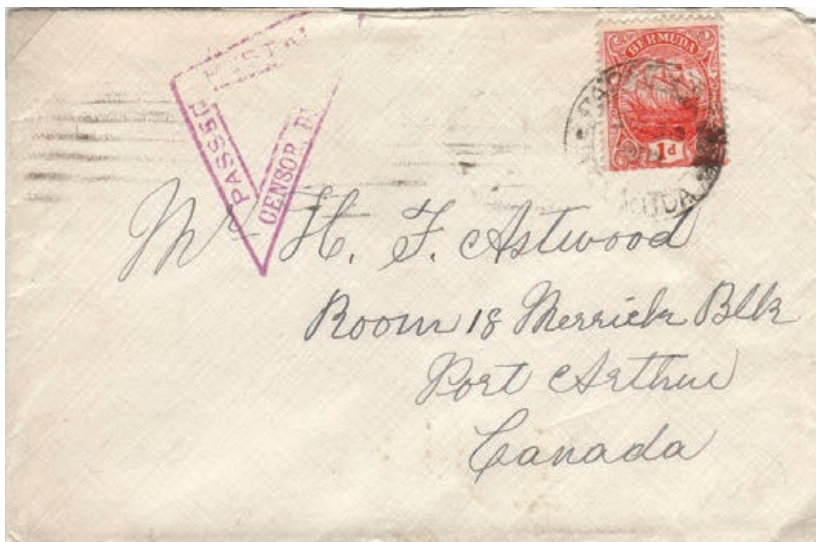 POSTAL
PASSED
CENSOR
BERMUDA
1d
Mr H. F. Astwood
Room 18 Merrick Blk
Port Arthur
Canada